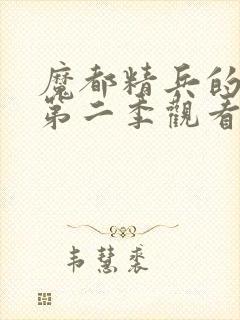 魔都精兵的
第二季觀看
韦慧裘